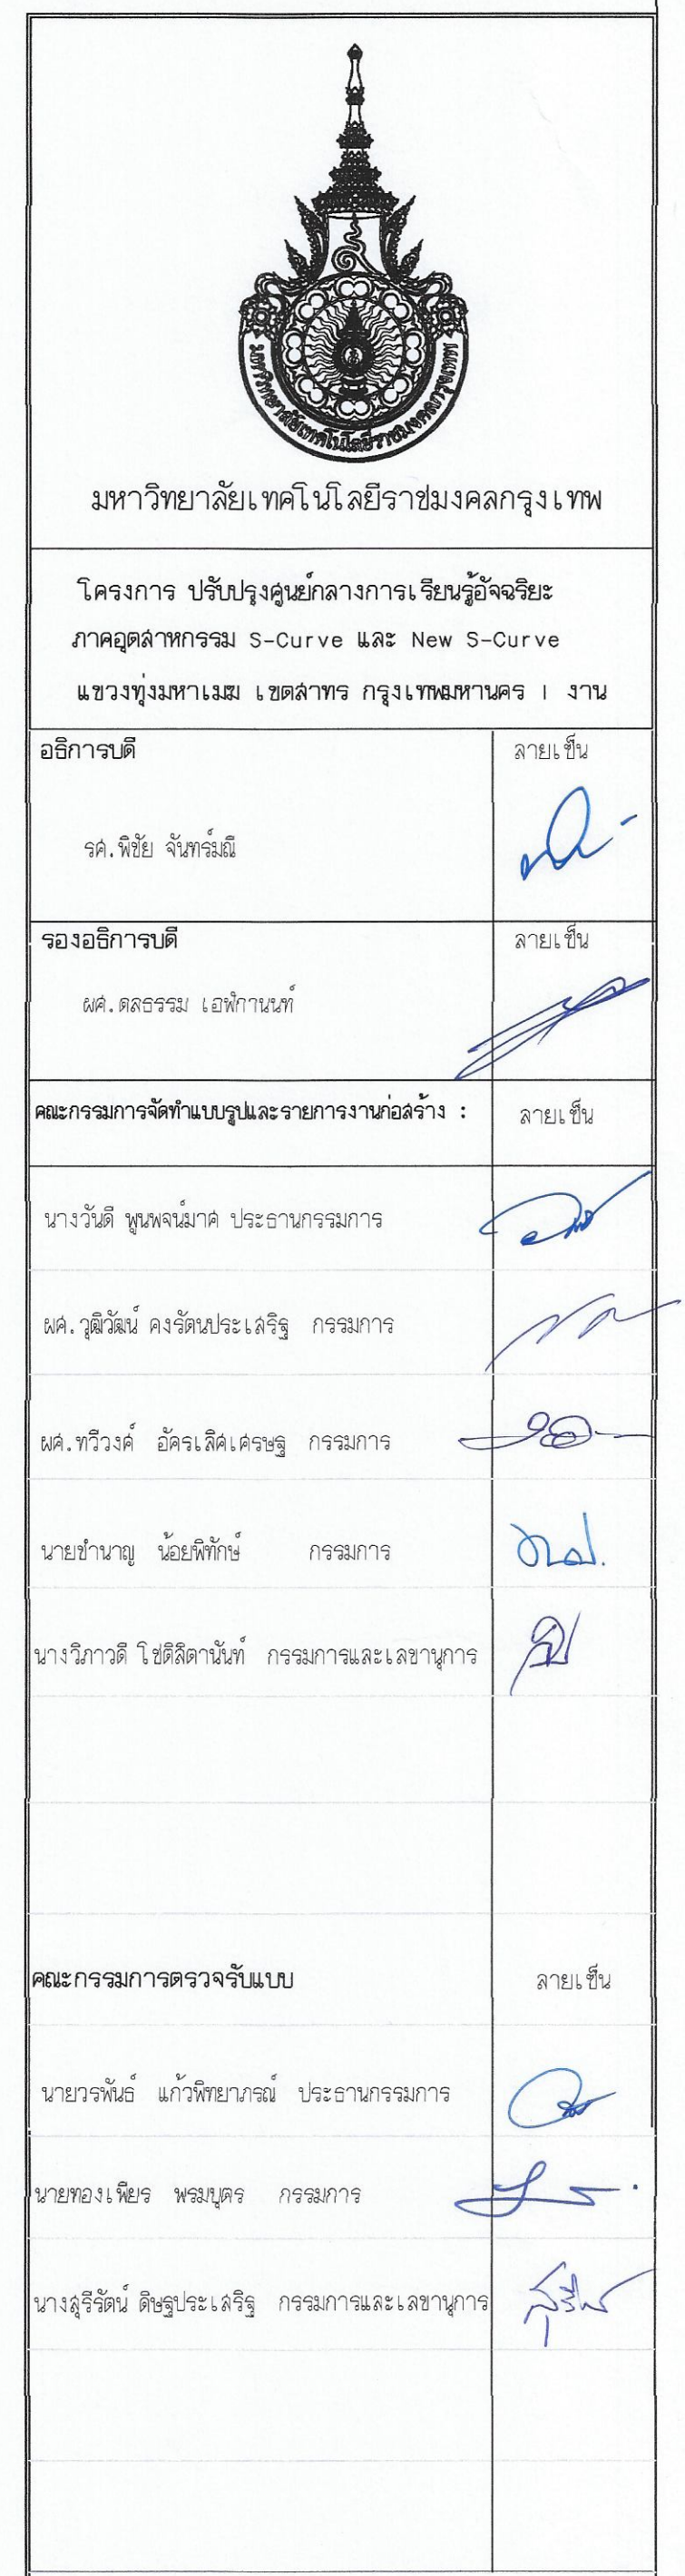 มหาวิทยาลัยเทคโนโลยีราชมงคลกรุงเทพ
มหาวิทยาลัยเทคโนโลยีราชมงคลกรุงเทพ
โครงการ ปรับปรุงศูนย์กลางการเรียนรู้อัจฉริยะ
ภาคอุตสาหกรรม S-Curve และ New S-Curve
แขวงทุ่งมหาเมฆ เขตสาทร กรุงเทพมหานคร 1 งาน
อธิการบดี ลายเซ็น
รศ.พิชัย จันทร์มณี
รองอธิการบดี ลายเซ็น
ผศ.ดลธรรม เอฬกานนท์
คณะกรรมการจัดทำแบบรูปและรายการงานก่อสร้าง : ลายเซ็น
นางวันดี พูนพจน์มาศ ประธานกรรมการ
ผศ.วุฒิวัฒน์ คงรัตนประเสริฐ กรรมการ
ผศ.ทวีวงศ์ อัครเลิศเศรษฐ กรรมการ
นายชำนาญ น้อยพิทักษ์ กรรมการ
นางวิภาวดี โชติสิตานันท์ กรรมการและเลขานุการ
คณะกรรมการตรวจรับแบบ ลายเซ็น
นายวรพันธ์ แก้วพิทยาภรณ์ ประธานกรรมการ
นายทองเพียร พรมบุตร กรรมการ
นางสุรีรัตน์ ดิษฐประเสริฐ กรรมการและเลขานุการ